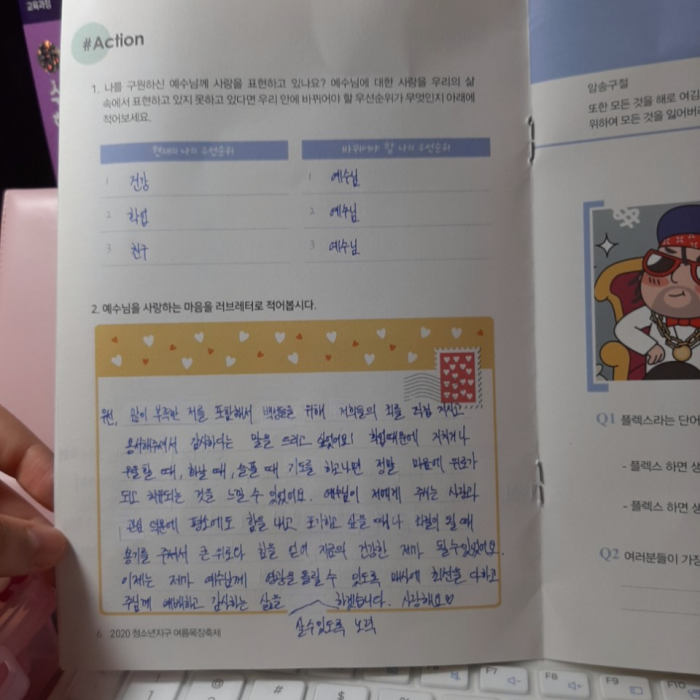 교육과정
#Action
1. 나를 구원하신 예수님께 사랑을 표현하고 있나요? 예수님에 대한 사랑을 우리의 삶
속에서 표현하고 있지 못하고 있다면 우리 안에 바뀌어야 할 우선순위가 무엇인지 아래에
적어보세요.
현재의 나의 우선순위
바뀌어야 할 나의 우선순위
1 건강
1 예수님
2 학업
2 예수님
3 친구
3 예수님
2. 예수님을 사랑하는 마음을 러브레터로 적어봅시다.
많이 부족한 저를 포함해서 백성들을 위해 저희들의 죄를 직접 지시고
용서해주셔서 감사하다는 말을 드리고 싶었어요! 학업때문에 지치거나
우울할 때, 화날 때, 슬플 때 기도를 하고나면 정말 마음에 위로가
되고 치유되는 것을 느낄 수 있었어요. 예수님이 저에게 주시는 사랑과
관심 덕분에 평소에도 힘을 내고, 포기하고 싶을 때나 좌절이 될 때
용기를 주셔서 큰 위로와 힘을 얻어 지금의 건강한 제가 될 수 있었어요.
이제는 제가 예수님께 영광을 돌릴 수 있도록 매사에 최선을 다하고
주님께 예배하고 감사하는 삶을 하겠습니다. 사랑해요♡
살 수 있도록 노력
6 2020 청소년지구 여름목장축제
암송구절
또한 모든 것을 해로 여김
위하여 모든 것을 잃어버
Q1 플렉스라는 단어
- 플렉스 하면 생
- 플렉스 하면 생
Q2 여러분들이 가장
F7
F8
F9
F10
#
$